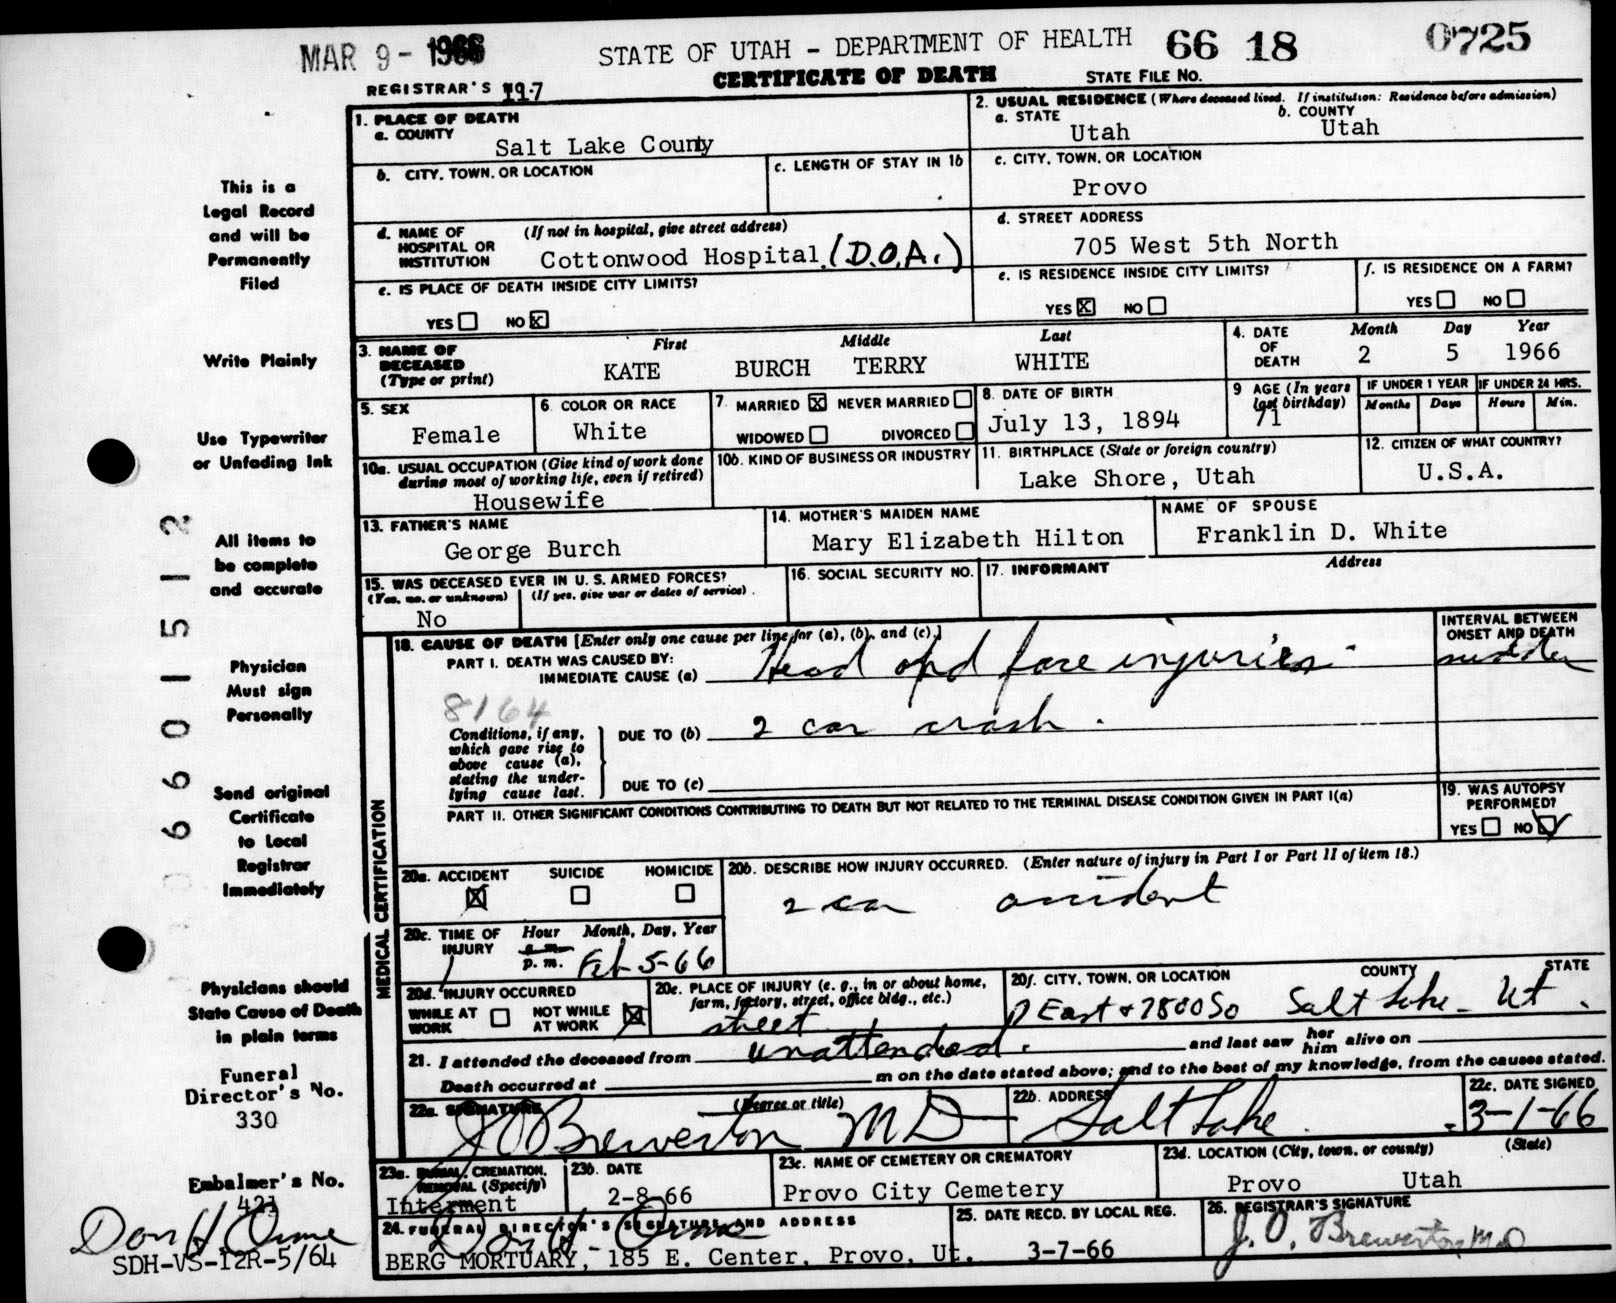 MAR 9 - 1966
STATE OF UTAH - DEPARTMENT OF HEALTH 66 18 0725
CERTIFICATE OF DEATH STATE FILE NO.
REGISTRAR'S NO. 117
1. PLACE OF DEATH
a. COUNTY
Salt Lake County
2. USUAL RESIDENCE (Where deceased lived. If institution: Residence before admission)
a. STATE b. COUNTY
Utah Utah
b. CITY, TOWN, OR LOCATION
c. LENGTH OF STAY IN 1b
c. CITY, TOWN, OR LOCATION
Provo
d. NAME OF HOSPITAL OR INSTITUTION (If not in hospital, give street address)
Cottonwood Hospital (D.O.A.)
d. STREET ADDRESS
705 West 5th North
e. IS PLACE OF DEATH INSIDE CITY LIMITS?
YES ☐ NO ☒
e. IS RESIDENCE INSIDE CITY LIMITS?
YES ☒ NO ☐
f. IS RESIDENCE ON A FARM?
YES ☐ NO ☐
3. NAME OF DECEASED (Type or print)
First Middle Last
KATE BURCH TERRY WHITE
4. DATE OF DEATH
Month Day Year
2 5 1966
5. SEX
Female
6. COLOR OR RACE
White
7. MARRIED ☒ NEVER MARRIED ☐
WIDOWED ☐ DIVORCED ☐
8. DATE OF BIRTH
July 13, 1894
9 AGE (In years last birthday)
71
IF UNDER 1 YEAR
Months Days
IF UNDER 24 HRS.
Hours Min.
10a. USUAL OCCUPATION (Give kind of work done during most of working life, even if retired)
Housewife
10b. KIND OF BUSINESS OR INDUSTRY
11. BIRTHPLACE (State or foreign country)
Lake Shore, Utah
12. CITIZEN OF WHAT COUNTRY?
U.S.A.
13. FATHER'S NAME
George Burch
14. MOTHER'S MAIDEN NAME
Mary Elizabeth Hilton
NAME OF SPOUSE
Franklin D. White
15. WAS DECEASED EVER IN U. S. ARMED FORCES?
(Yes, no, or unknown) (If yes, give war or dates of service)
No
16. SOCIAL SECURITY NO.
17. INFORMANT Address
18. CAUSE OF DEATH [Enter only one cause per line for (a), (b), and (c).]
PART I. DEATH WAS CAUSED BY:
IMMEDIATE CAUSE (a) Head and face injuries
INTERVAL BETWEEN ONSET AND DEATH
sudden
8164
Conditions, if any, which gave rise to above cause (a), stating the underlying cause last.
DUE TO (b) 2 car crash.
DUE TO (c)
PART II. OTHER SIGNIFICANT CONDITIONS CONTRIBUTING TO DEATH BUT NOT RELATED TO THE TERMINAL DISEASE CONDITION GIVEN IN PART I(a)
19. WAS AUTOPSY PERFORMED?
YES ☐ NO ☑
MEDICAL CERTIFICATION
20a. ACCIDENT SUICIDE HOMICIDE
☒ ☐ ☐
20b. DESCRIBE HOW INJURY OCCURRED. (Enter nature of injury in Part I or Part II of item 18.)
2 car accident
20c. TIME OF INJURY
Hour Month, Day, Year
1 a.m. p.m. Feb 5-66
20d. INJURY OCCURRED
WHILE AT WORK ☐ NOT WHILE AT WORK ☒
20e. PLACE OF INJURY (e. g., in or about home, farm, factory, street, office bldg., etc.)
street
20f. CITY, TOWN, OR LOCATION COUNTY STATE
East & 7800 So Salt Lake - Ut.
21. I attended the deceased from unattended. and last saw her him alive on
Death occurred at m on the date stated above; and to the best of my knowledge, from the causes stated.
22a. SIGNATURE (Degree or title)
J O Brewerton MD
22b. ADDRESS
Salt Lake
22c. DATE SIGNED
3-1-66
23a. BURIAL, CREMATION, REMOVAL (Specify)
Interment
23b. DATE
2-8-66
23c. NAME OF CEMETERY OR CREMATORY
Provo City Cemetery
23d. LOCATION (City, town, or county) (State)
Provo Utah
24. FUNERAL DIRECTOR'S SIGNATURE AND ADDRESS
Don H. Orme
BERG MORTUARY, 185 E. Center, Provo, Ut.
25. DATE RECD. BY LOCAL REG.
3-7-66
26. REGISTRAR'S SIGNATURE
J. O. Brewerton, MD
This is a
Legal Record
and will be
Permanently
Filed
Write Plainly
Use Typewriter
or Unfading Ink
All items to
be complete
and accurate
Physician
Must sign
Personally
Send original
Certificate
to Local
Registrar
Immediately
Physicians should
State Cause of Death
in plain terms
Funeral
Director's No.
330
Embalmer's No.
421
Don H Orme
SDH-VS-12R-5/64
06601512